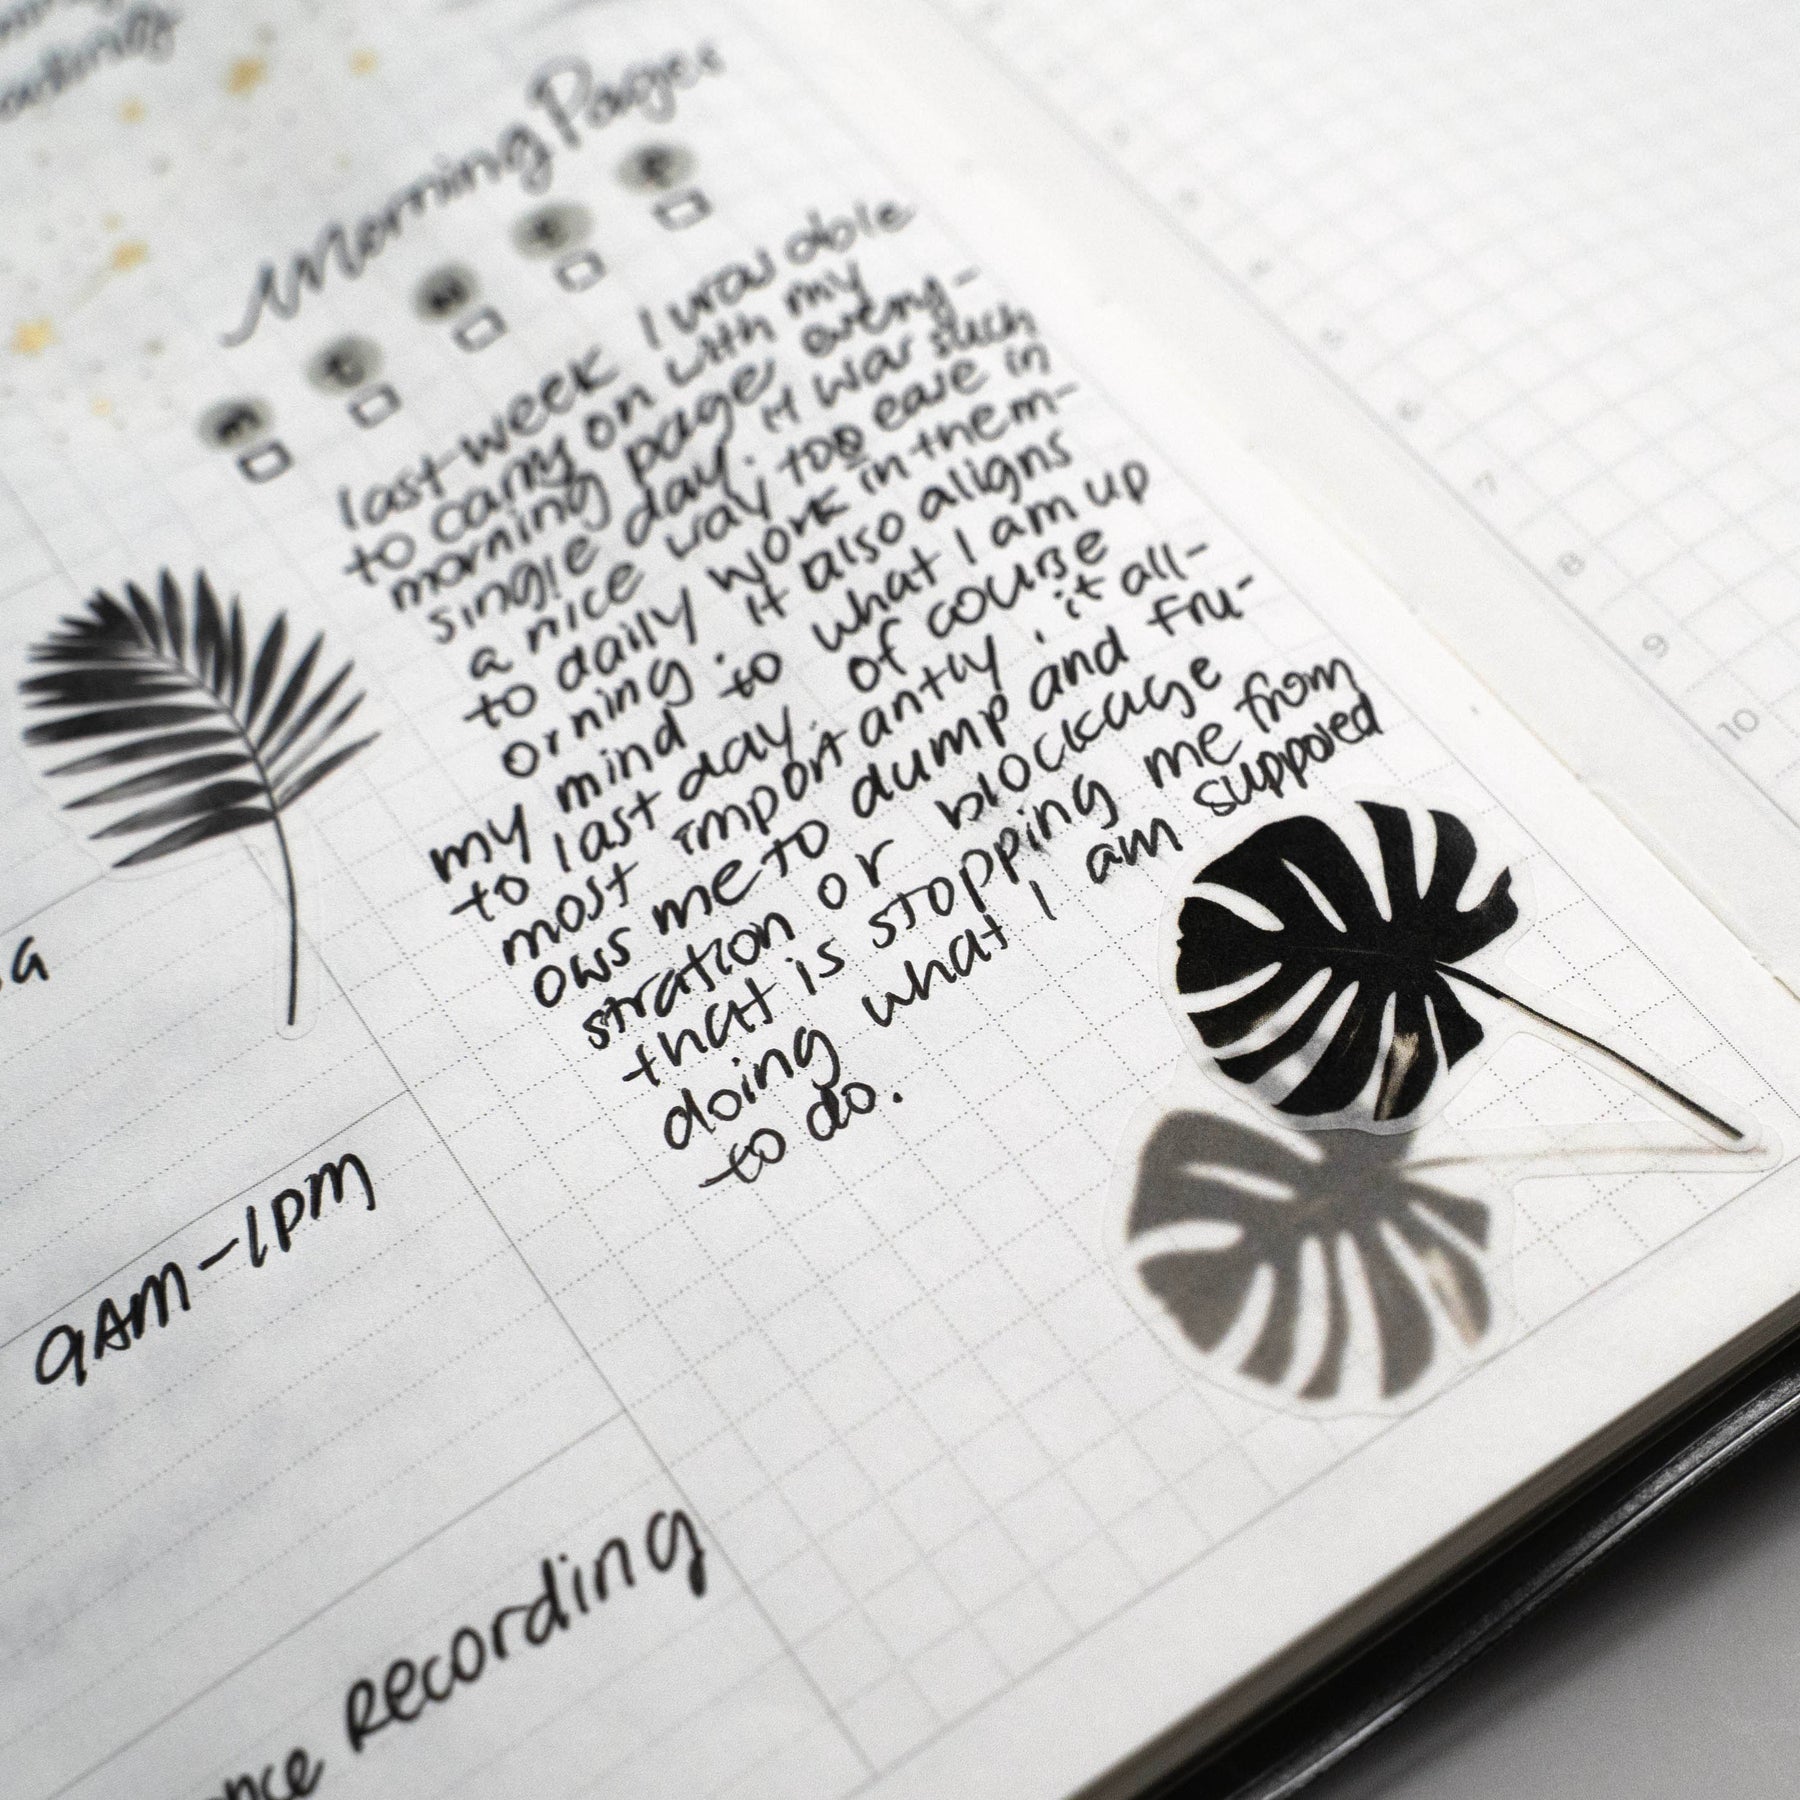 Morning Pages
M T W T F
last week I was able
to carry on with my
morning page every-
single day. It was such
a nice way too ease in
to daily work in them-
orning. It also aligns
my mind to what I am up
to last day. of course
most importantly, it all-
ows me to dump and fru-
stration or blockage
that is stopping me from
doing what I am supposed
to do.
9AM-1PM
recording
7
8
9
10